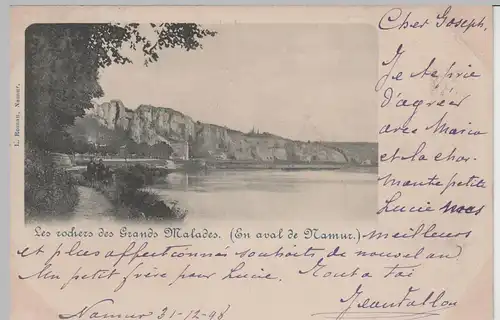 Cher Joseph,
Je te prie
d'agréer
avec Maria
et la char-
mante petite
Lucie mes
L. Roman, Namur.
Les rochers des Grands Malades. (En aval de Namur.) meilleurs
et plus affectionnés souhaits de nouvel an
Un petit frère pour Lucie. Tout à toi
Namur 31-12-98